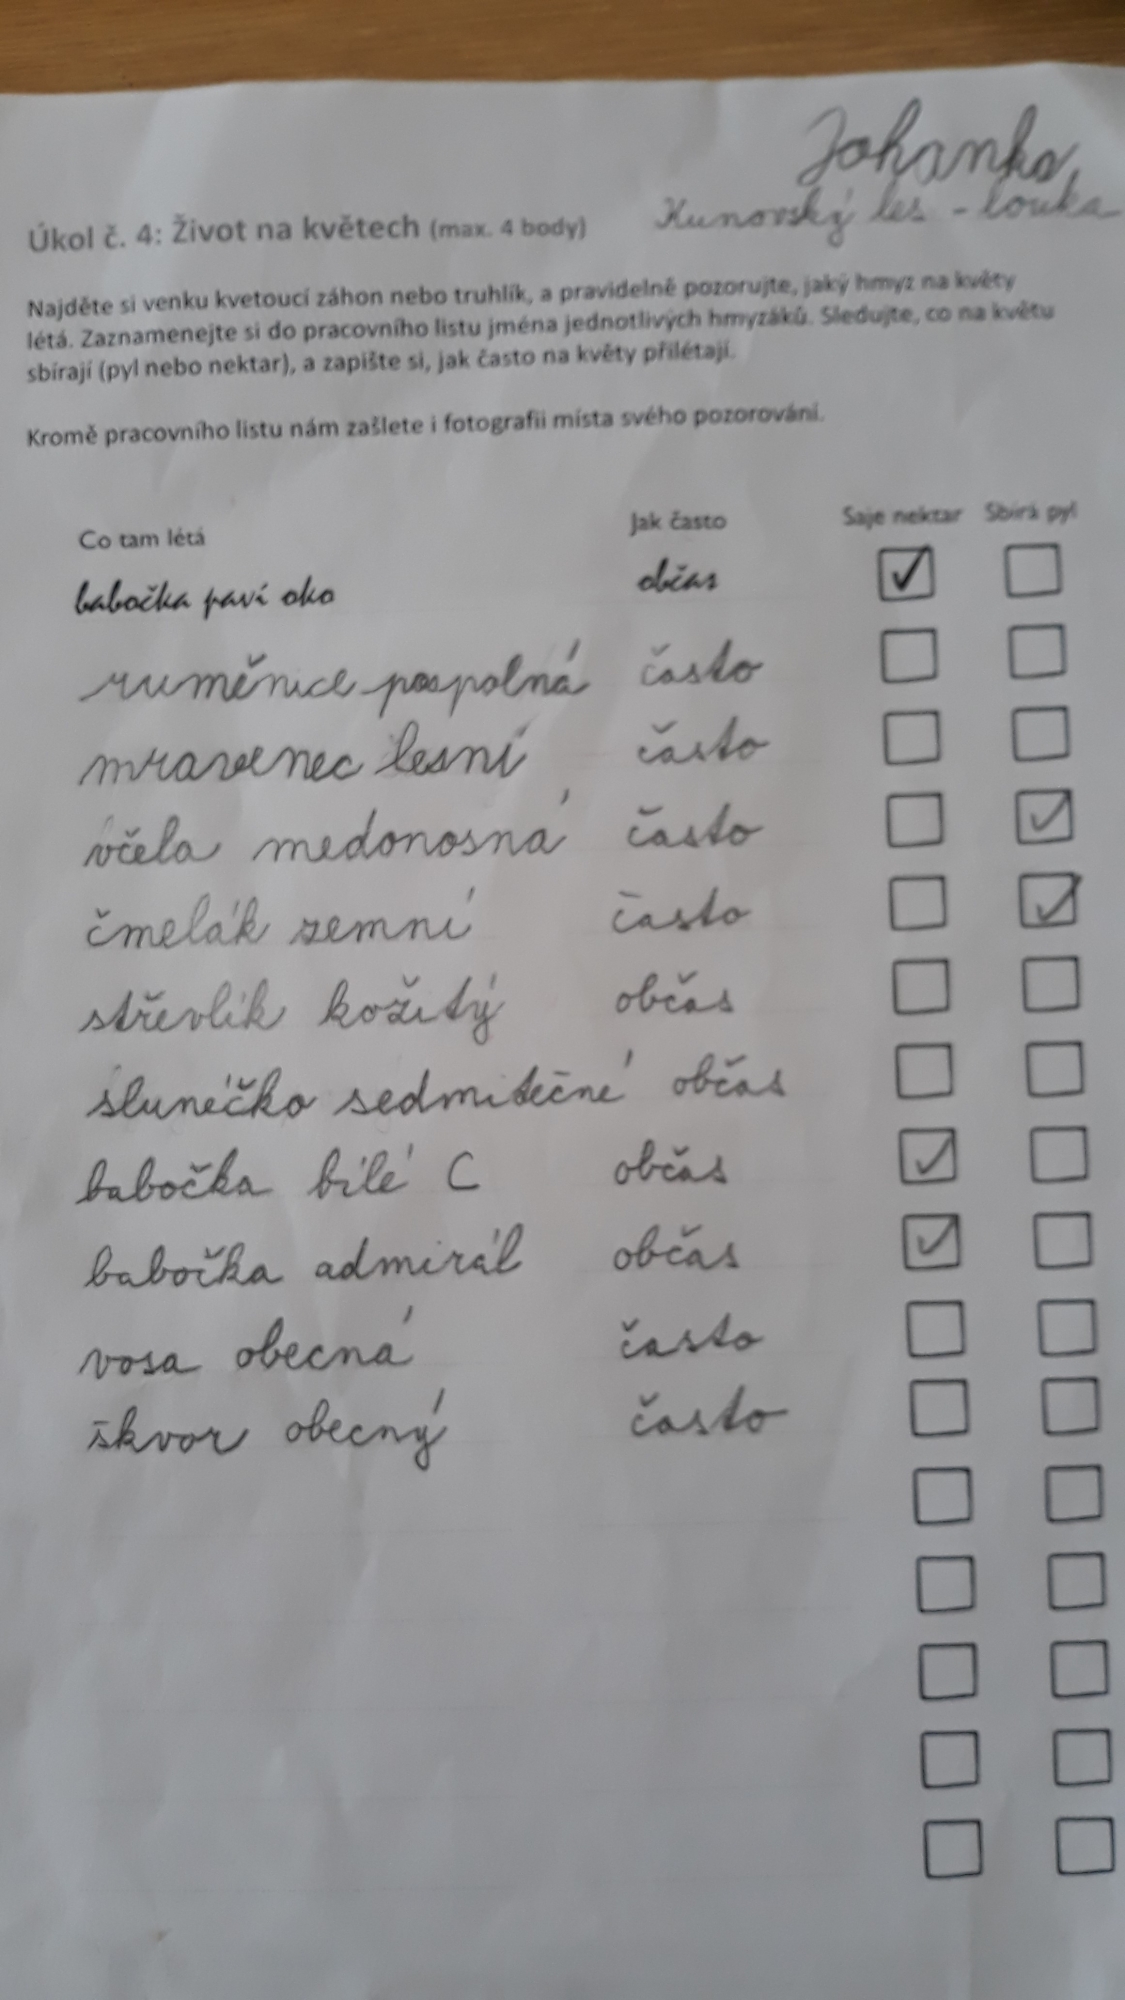 Johanka
Kunovský les - louka
Úkol č. 4: Život na květech (max. 4 body)
Najděte si venku kvetoucí záhon nebo truhlík, a pravidelně pozorujte, jaký hmyz na květy
létá. Zaznamenejte si do pracovního listu jména jednotlivých hmyzáků. Sledujte, co na květu
sbírají (pyl nebo nektar), a zapište si, jak často na květy přilétají.
Kromě pracovního listu nám zašlete i fotografii místa svého pozorování.
Co tam létá Jak často Saje nektar Sbírá pyl
babočka paví oko občas
ruměnice pospolná často
mravenec lesní často
včela medonosná často
čmelák zemní často
střevlík kožitý občas
slunéčko sedmitečné občas
babočka bílé C občas
babočka admirál občas
vosa obecná často
škvor obecný často